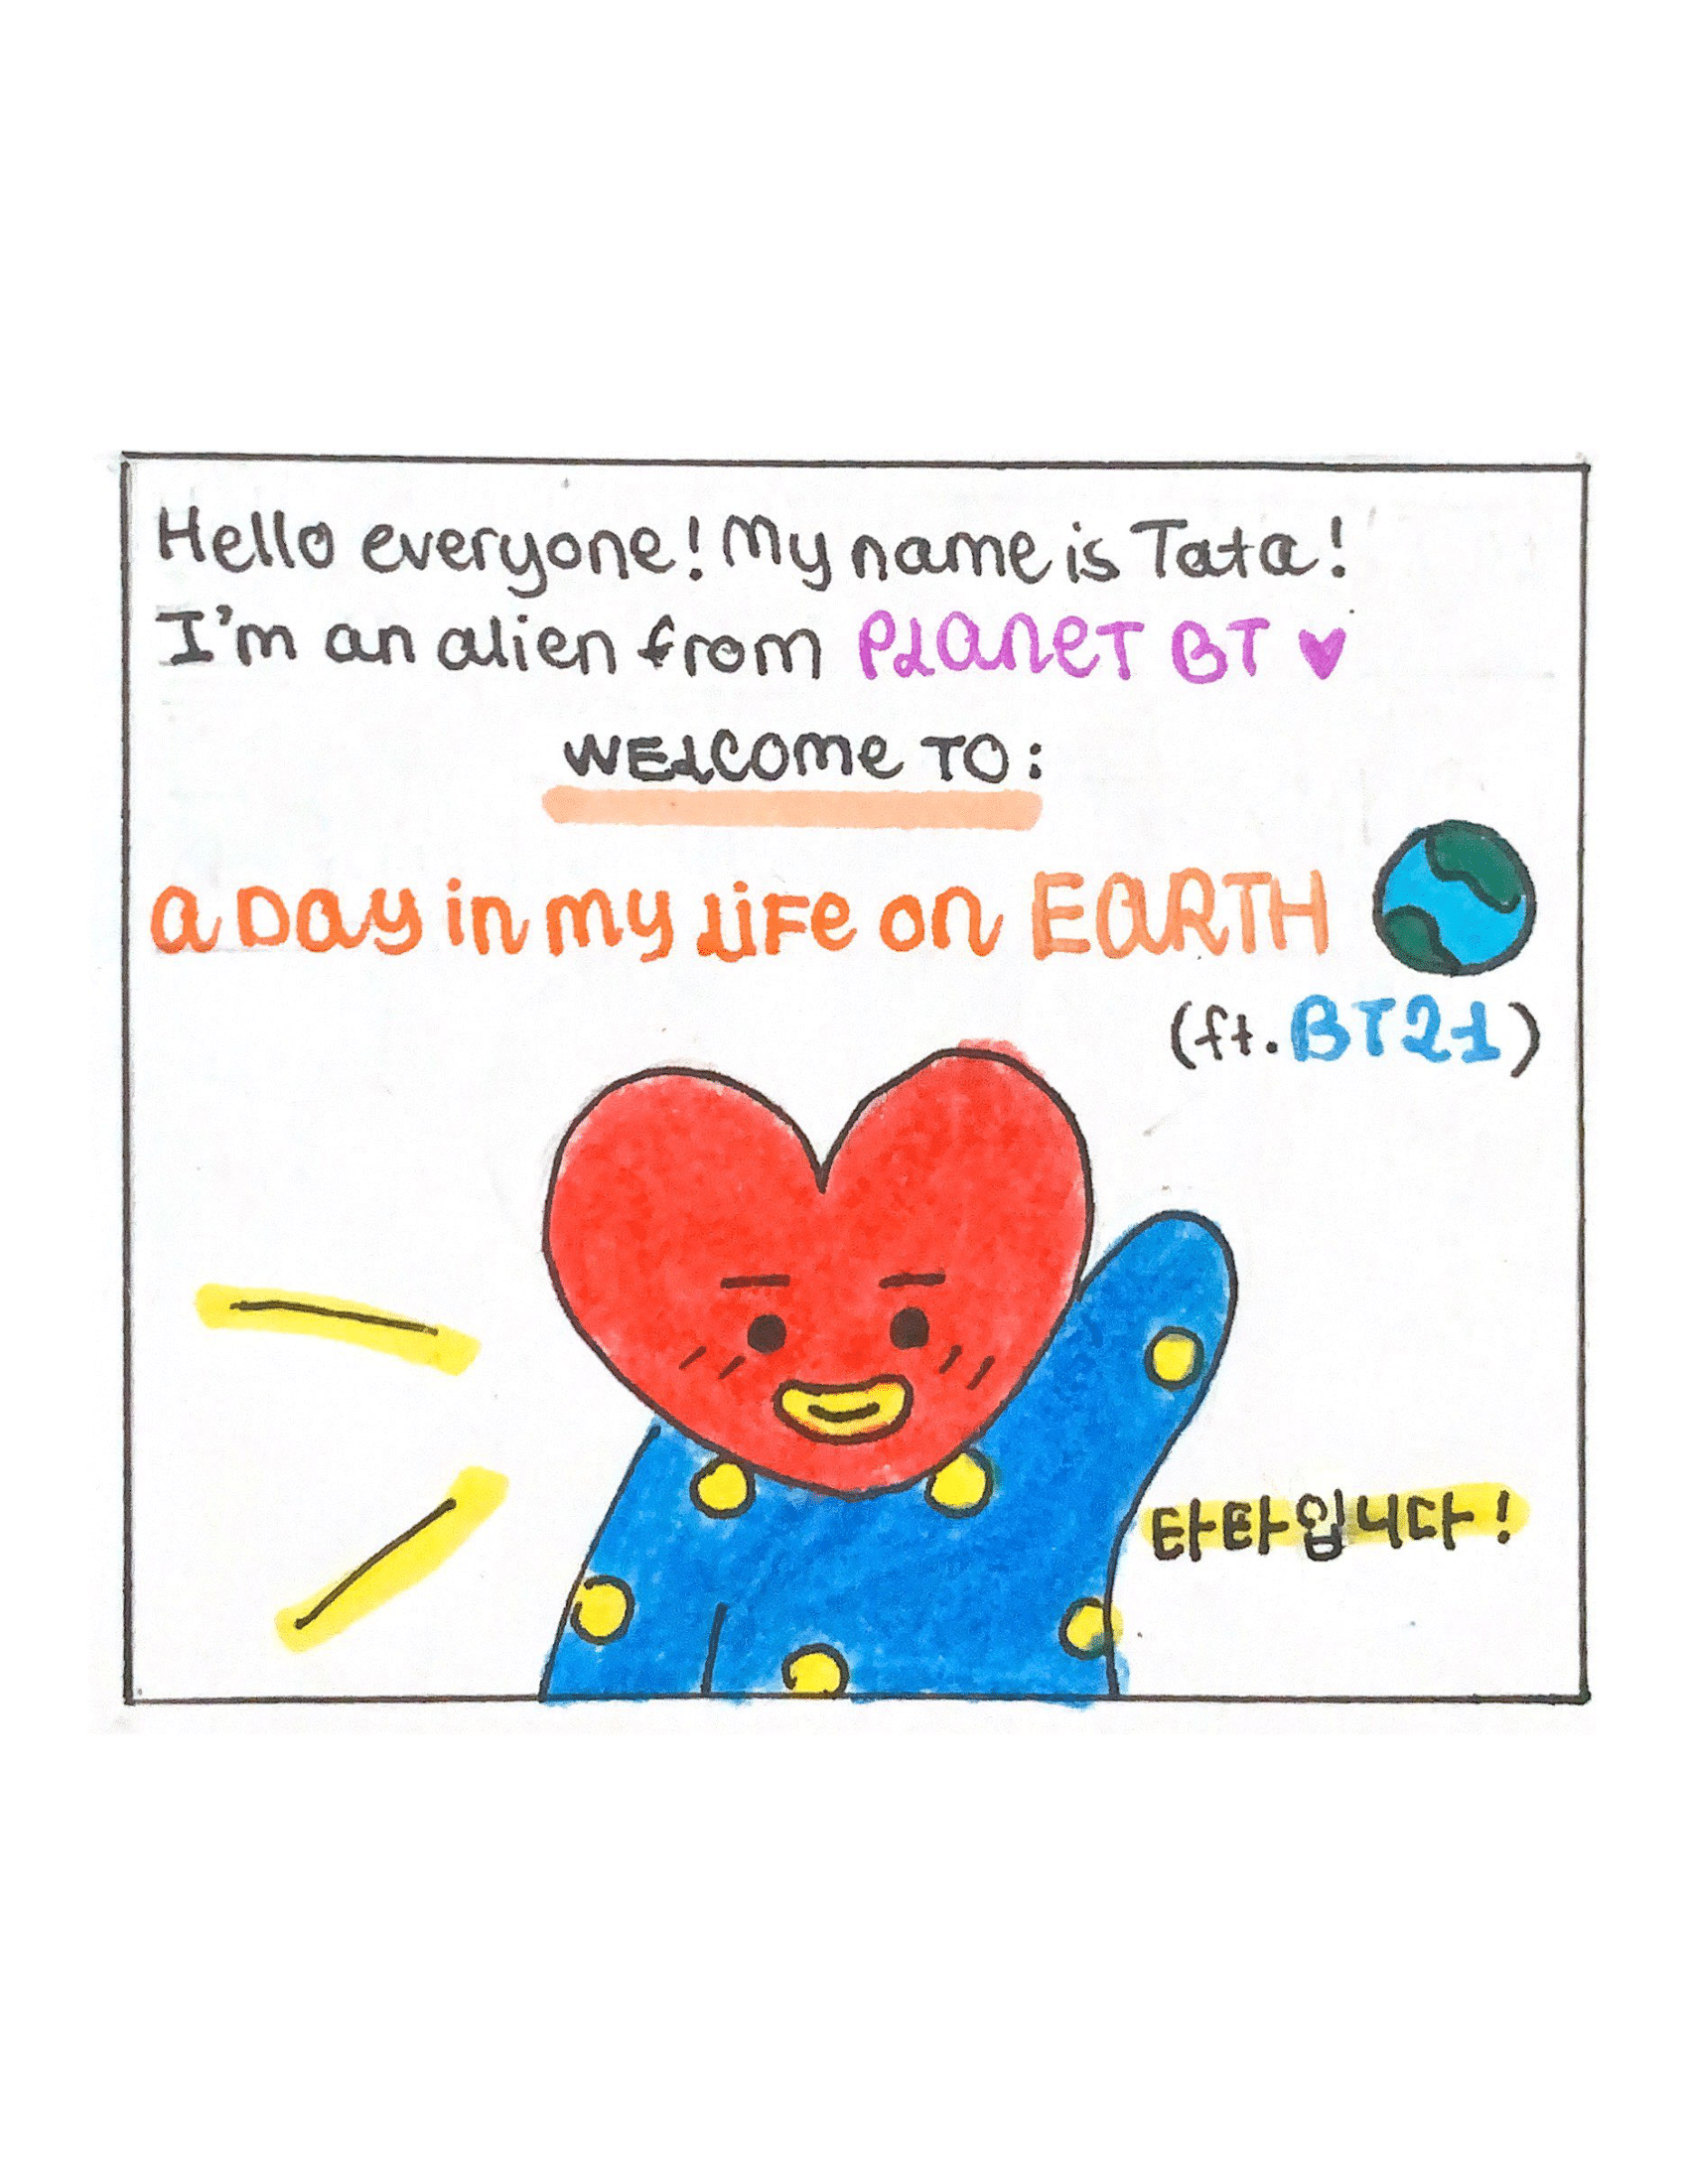 Hello everyone! My name is Tata!
I'm an alien from PLANET BT ♥
WELCOME TO:
A DAY in my LIFE on EARTH
(ft. BT21)
타타입니다!